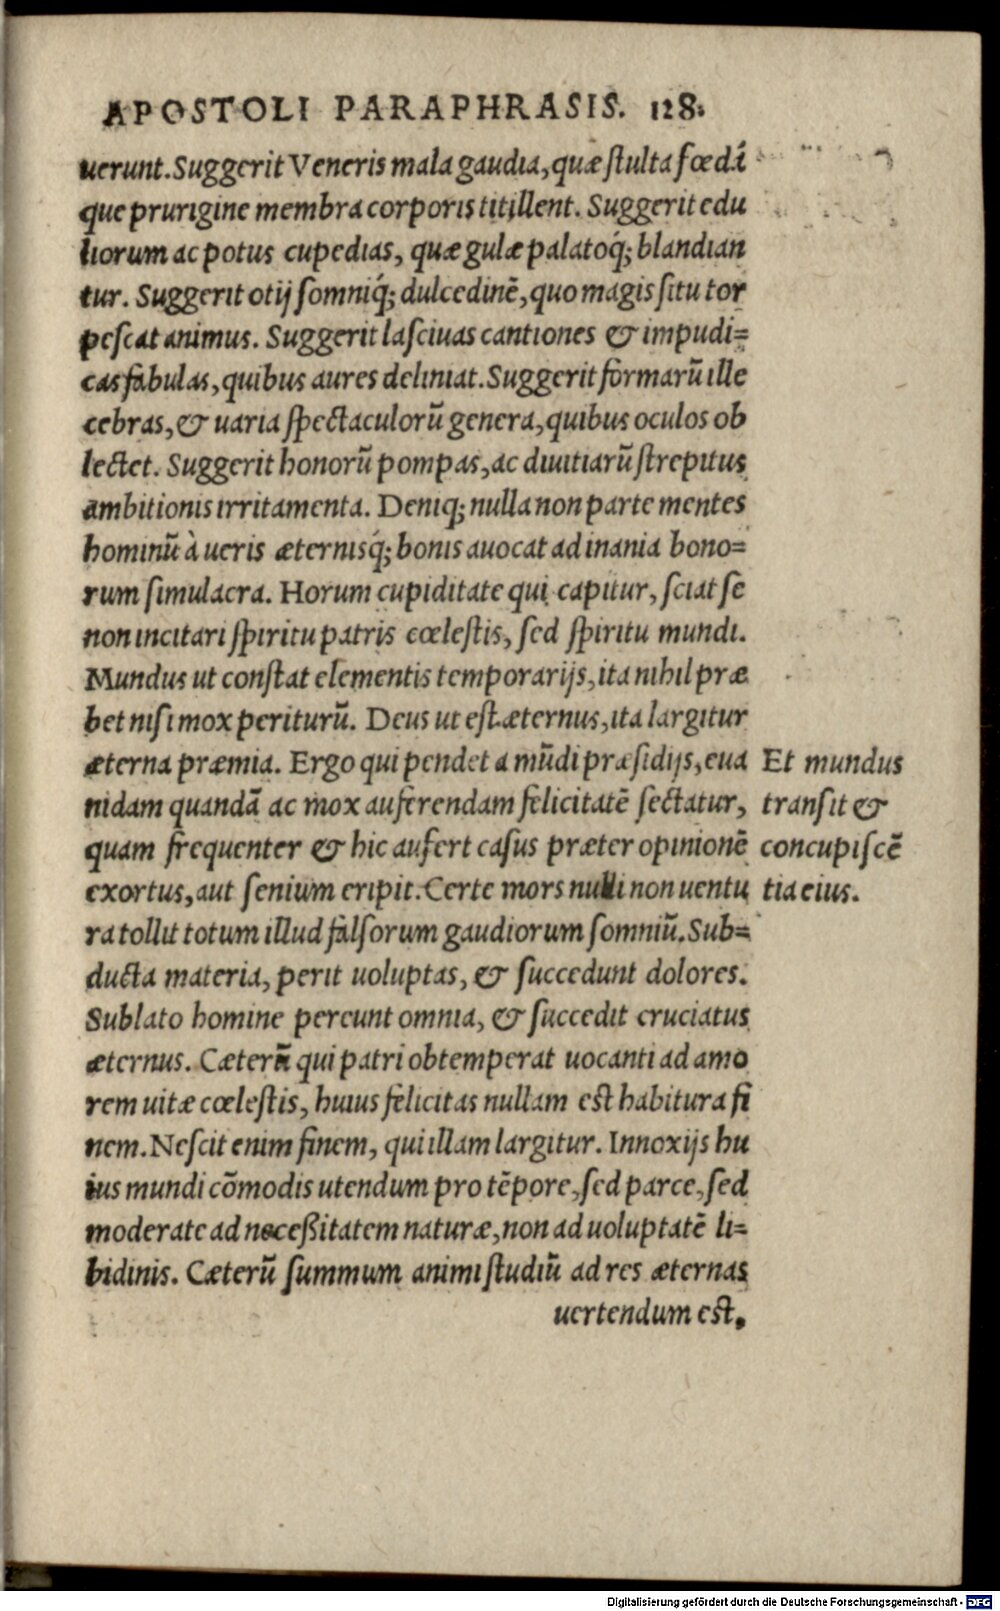 APOSTOLI PARAPHRASIS. 128.
uerunt. Suggerit Veneris mala gaudia, quæ stulta fœdáꝗ
que prurigine membra corporis titillent. Suggerit edu
liorum ac potus cupedias, quæ gulæ palatoq́; blandian
tur. Suggerit otij somniq́; dulcedinẽ, quo magis situ tor
pescat animus. Suggerit lasciuas cantiones & impudi=
cas fabulas, quibus aures deliniat. Suggerit formarũ ille
cebras, & uaria spectaculorũ genera, quibus oculos ob
lectet. Suggerit honorũ pompas, ac diuitiarũ strepitus
ambitionis irritamenta. Deniq; nulla non parte mentes
hominũ à ueris æternisq́; bonis auocat ad inania bono=
rum simulacra. Horum cupiditate qui capitur, sciat se
non incitari spiritu patris cœlestis, sed spiritu mundi.
Mundus ut constat elementis temporarijs, ita nihil præ
bet nisi mox periturũ. Deus ut est æternus, ita largitur
æterna præmia. Ergo qui pendet a mũdi præsidijs, eua
nidam quandã ac mox auferendam felicitatẽ sectatur,
quam frequenter & hic aufert casus præter opinionẽ
exortus, aut senium eripit. Certe mors nulli non uentu
ra tollit totum illud falsorum gaudiorum somniũ. Sub=
ducta materia, perit uoluptas, & succedunt dolores.
Sublato homine pereunt omnia, & succedit cruciatus
æternus. Cæterũ qui patri obtemperat uocanti ad amo
rem uitæ cœlestis, huius felicitas nullam est habitura fi
nem. Nescit enim finem, qui illam largitur. Innoxijs hu
ius mundi cõmodis utendum pro tẽpore, sed parce, sed
moderate ad necessitatem naturæ, non ad uoluptatẽ li=
bidinis. Cæterũ summum animi studiũ ad res æternas
uertendum est.
Et mundus
transit &
concupiscẽ
tia eius.
Digitalisierung gefördert durch die Deutsche Forschungsgemeinschaft - DFG